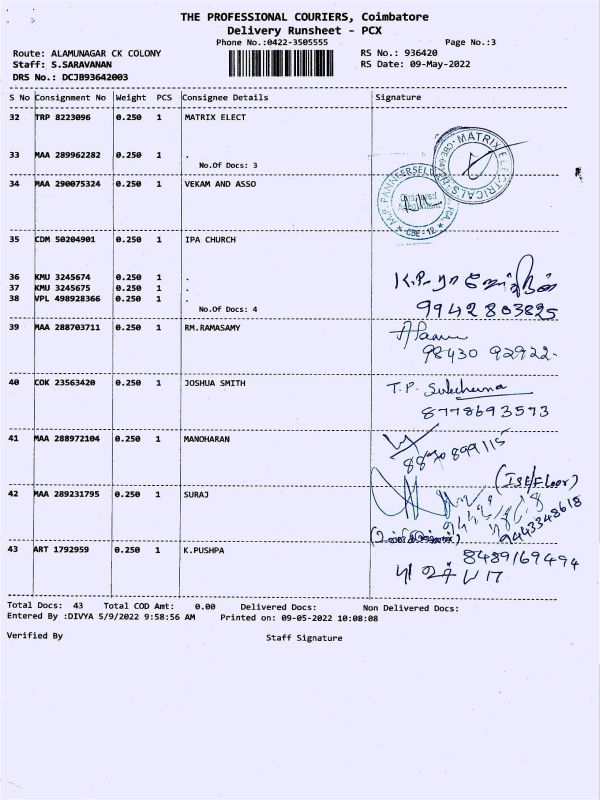 THE PROFESSIONAL COURIERS, Coimbatore
Delivery Runsheet - PCX
Phone No.:0422-3505555
Page No.:3
Route: ALAMUNAGAR CK COLONY
RS No.: 936420
Staff: S.SARAVANAN
RS Date: 09-May-2022
DRS No.: DCJB93642003
S No Consignment No Weight PCS Consignee Details Signature
32 TRP 8223096 0.250 1 MATRIX ELECT
33 MAA 289962282 0.250 1 .
No.Of Docs: 3
MATRIX ELECTRICALS
34 MAA 290075324 0.250 1 VEKAM AND ASSO
M.P. PANNEERSELVAM, FCA.
Chartered Accountant
CBE - 12
35 CDM 50204901 0.250 1 IPA CHURCH
36 KMU 3245674 0.250 1 .
37 KMU 3245675 0.250 1 .
38 VPL 498928366 0.250 1 .
No.Of Docs: 4
K.P.
9942803825
39 MAA 288703711 0.250 1 RM.RAMASAMY
98430 92922
40 COK 23563420 0.250 1 JOSHUA SMITH
T.P. Sulochana
8778693573
41 MAA 288972104 0.250 1 MANOHARAN
8870899115
42 MAA 289231795 0.250 1 SURAJ
(Ist/Floor)
9443348618
43 ART 1792959 0.250 1 K.PUSHPA
8489169494
Total Docs: 43 Total COD Amt: 0.00 Delivered Docs: Non Delivered Docs:
Entered By :DIVYA 5/9/2022 9:58:56 AM Printed on: 09-05-2022 10:08:08
Verified By Staff Signature